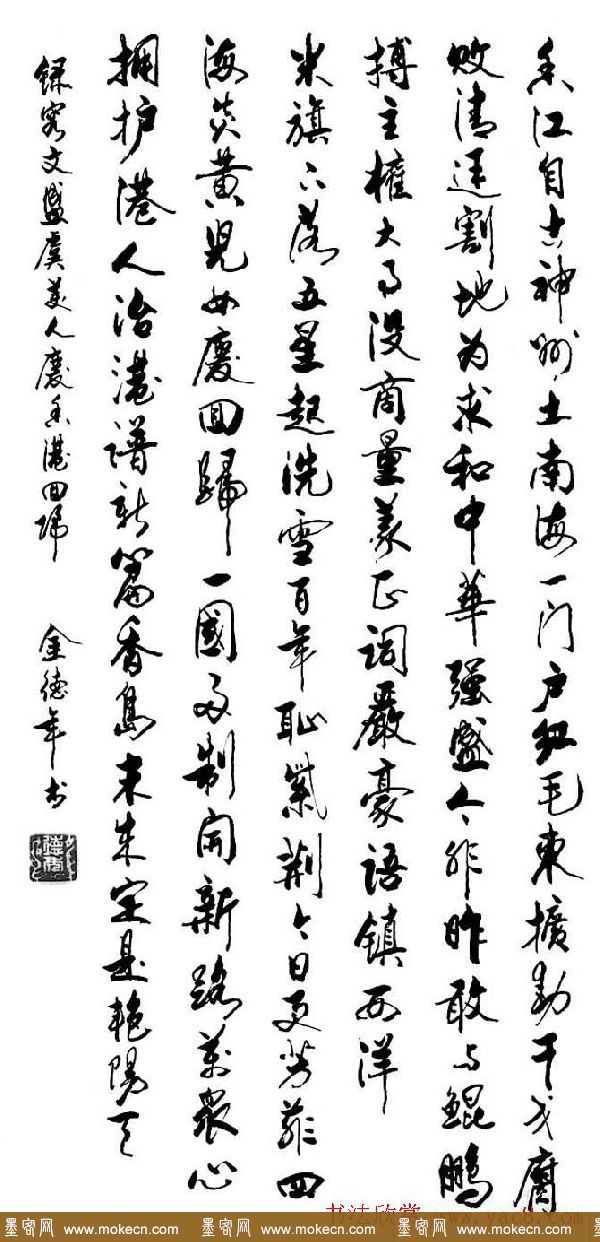 香江自古神州土南海一门户紅毛東擴動干戈腐
敗清廷割地为求和中華强盛今非昨敢与鲲鹏
搏主權大事没商量義正詞嚴豪語镇西洋
米旗下落五星起洗雪百年耻紫荆今日更芳菲四
海炎黄兒女慶回歸一國两制開新路萬衆心
拥护港人治港譜新篇香島未来定是艳陽天
録文盛虞美人慶香港回归 金德年书
书法欣赏
墨客网 www.mokecn.com 墨客网 www.mokecn.com 墨客网 www.mokecn.com